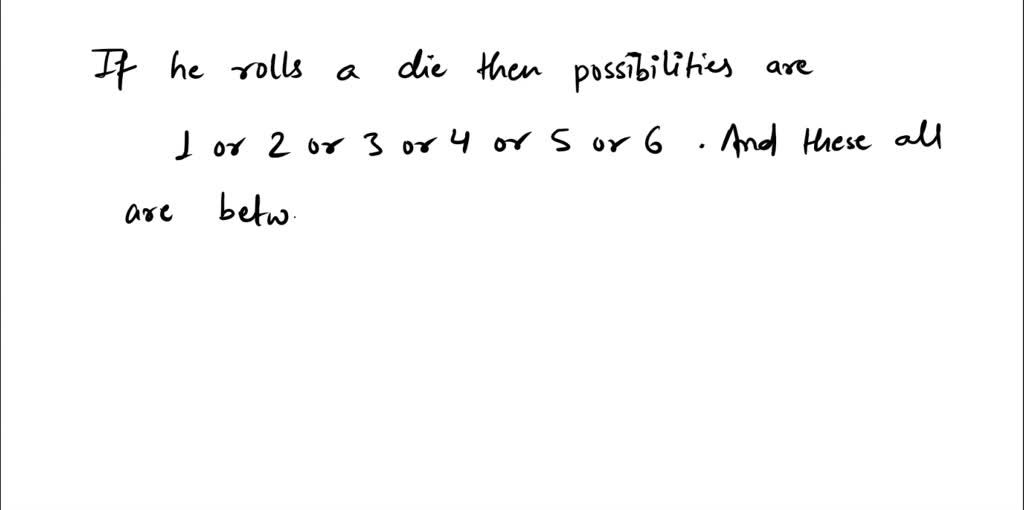 If he rolls a die then possibilities are
1 or 2 or 3 or 4 or 5 or 6 . And these all
are betw